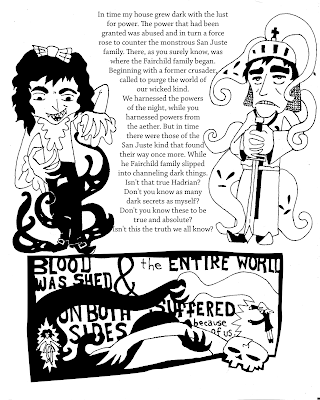 In time my house grew dark with the lust
for power. The power that had been
granted was abused and in turn a force
rose to counter the monstrous San Juste
family. There, as you surely know, was
where the Fairchild family began.
Beginning with a former crusader,
called to purge the world of
our wicked kind.
We harnessed the powers
of the night, while you
harnessed powers from
the aether. But in time
there were those of the
San Juste kind that found
their way once more. While
he Fairchild family slipped
into channeling dark things.
Isn't that true Hadrian?
Don't you know as many
dark secrets as myself?
Don't you know these to be
true and absolute?
isn't this the truth we all know?
BLOOD
WAS SHED
&
ON BOTH
SIDES
the ENTIRE WORLD
SUFFERED
because
of us